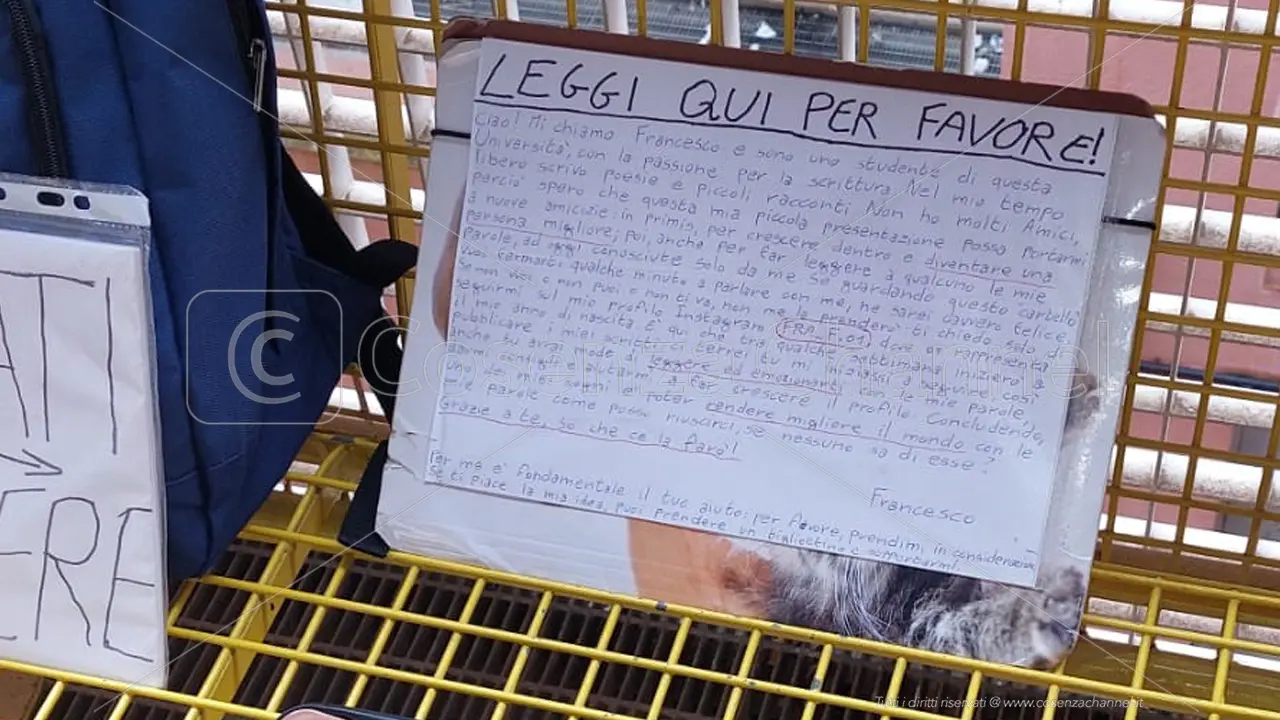 LEGGI QUI PER FAVORE!
Ciao! Mi chiamo Francesco e sono uno studente di questa
Università, con la passione per la scrittura. Nel mio tempo
libero scrivo poesie e piccoli racconti. Non ho molti Amici,
perciò spero che questa mia piccola presentazione possa portarmi
a nuove amicizie: in primis, per crescere dentro e diventare una
persona migliore; poi, anche per far leggere a qualcuno le mie
parole, ad oggi conosciute solo da me. Se guardando questo cartello
vuoi fermarti qualche minuto a parlare con me, ne sarei davvero felice.
Se non vuoi o non puoi o non ti va, non me la prenderò: ti chiedo solo di
seguirmi sul mio profilo Instagram FRA.F.01 dove 01 rappresenta
il mio anno di nascita. E' qui che tra qualche settimana inizierò a
pubblicare i miei scritti. Se tu mi iniziassi a seguire, così
anche tu avrai modo di leggere ed emozionarti con le mie parole,
darmi consigli e aiutarmi a far crescere il profilo. Concludendo,
uno dei miei sogni è poter rendere migliore il mondo con le
mie parole. Come posso riuscirci, se nessuno sa di esse?
Grazie a te, so che ce la farò!
Francesco
Per me è fondamentale il tuo aiuto: per favore, prendimi in considerazione.
Se ti piace la mia idea, puoi prendere un bigliettino e
ATI
ERE
© Cosenza Channel
Tutti i diritti riservati @ www.cosenzachannel.it